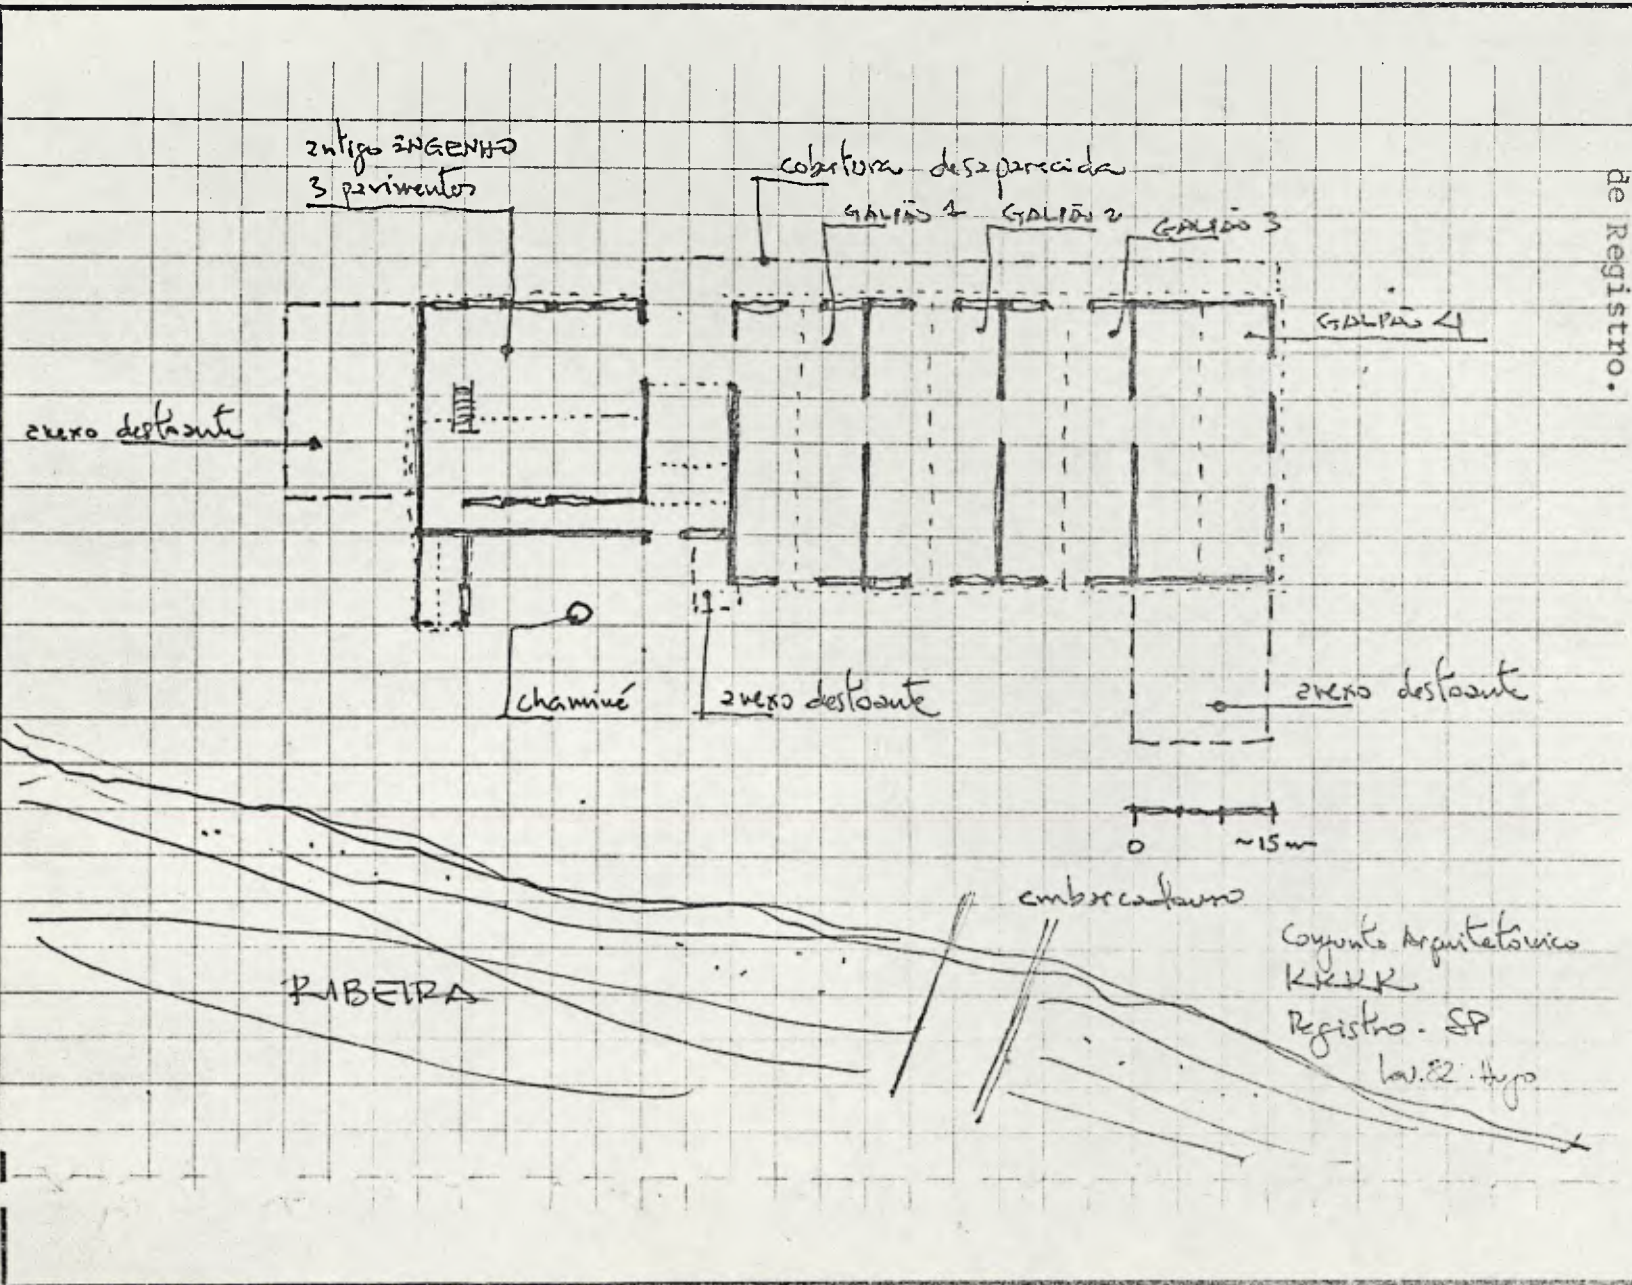 antigo ENGENHO
3 pavimentos
cobertura desaparecida
GALPÃO 1
GALPÃO 2
GALPÃO 3
GALPÃO 4
de Registro.
anexo destoante
chaminé
anexo destoante
anexo destoante
0 ~15m
embarcadouro
RIBEIRA
Conjunto Arquitetônico
KKKK
Registro - SP
lev. 82 . Hugo